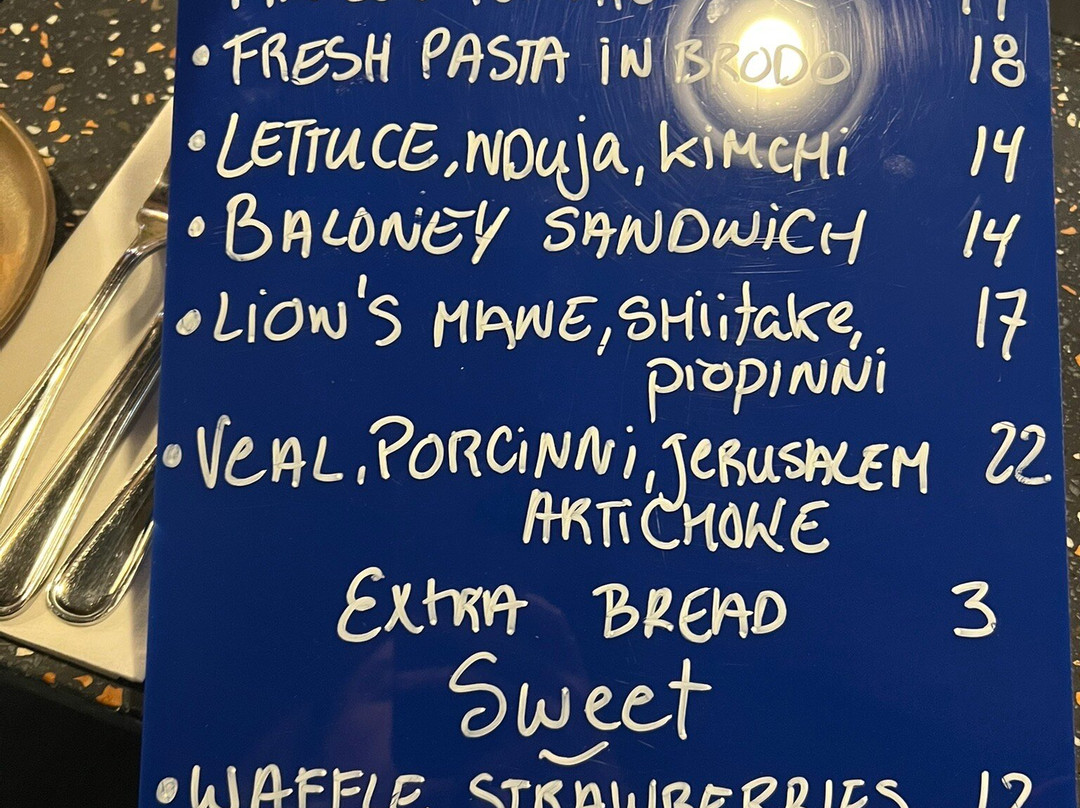 • FRESH PASTA IN BRODO 18
• LETTUCE, NDuja, KiMCHi 14
• BALONEY SANDWiCH 14
• LiON'S MANE, SHiitake, 17
piopiNNi
• VeAL, PORCiNNi, JERUSALEM 22
ARTiCHOKE
ExtRA BREAD 3
Sweet
• WAFFLE STRAWBERRIES 12